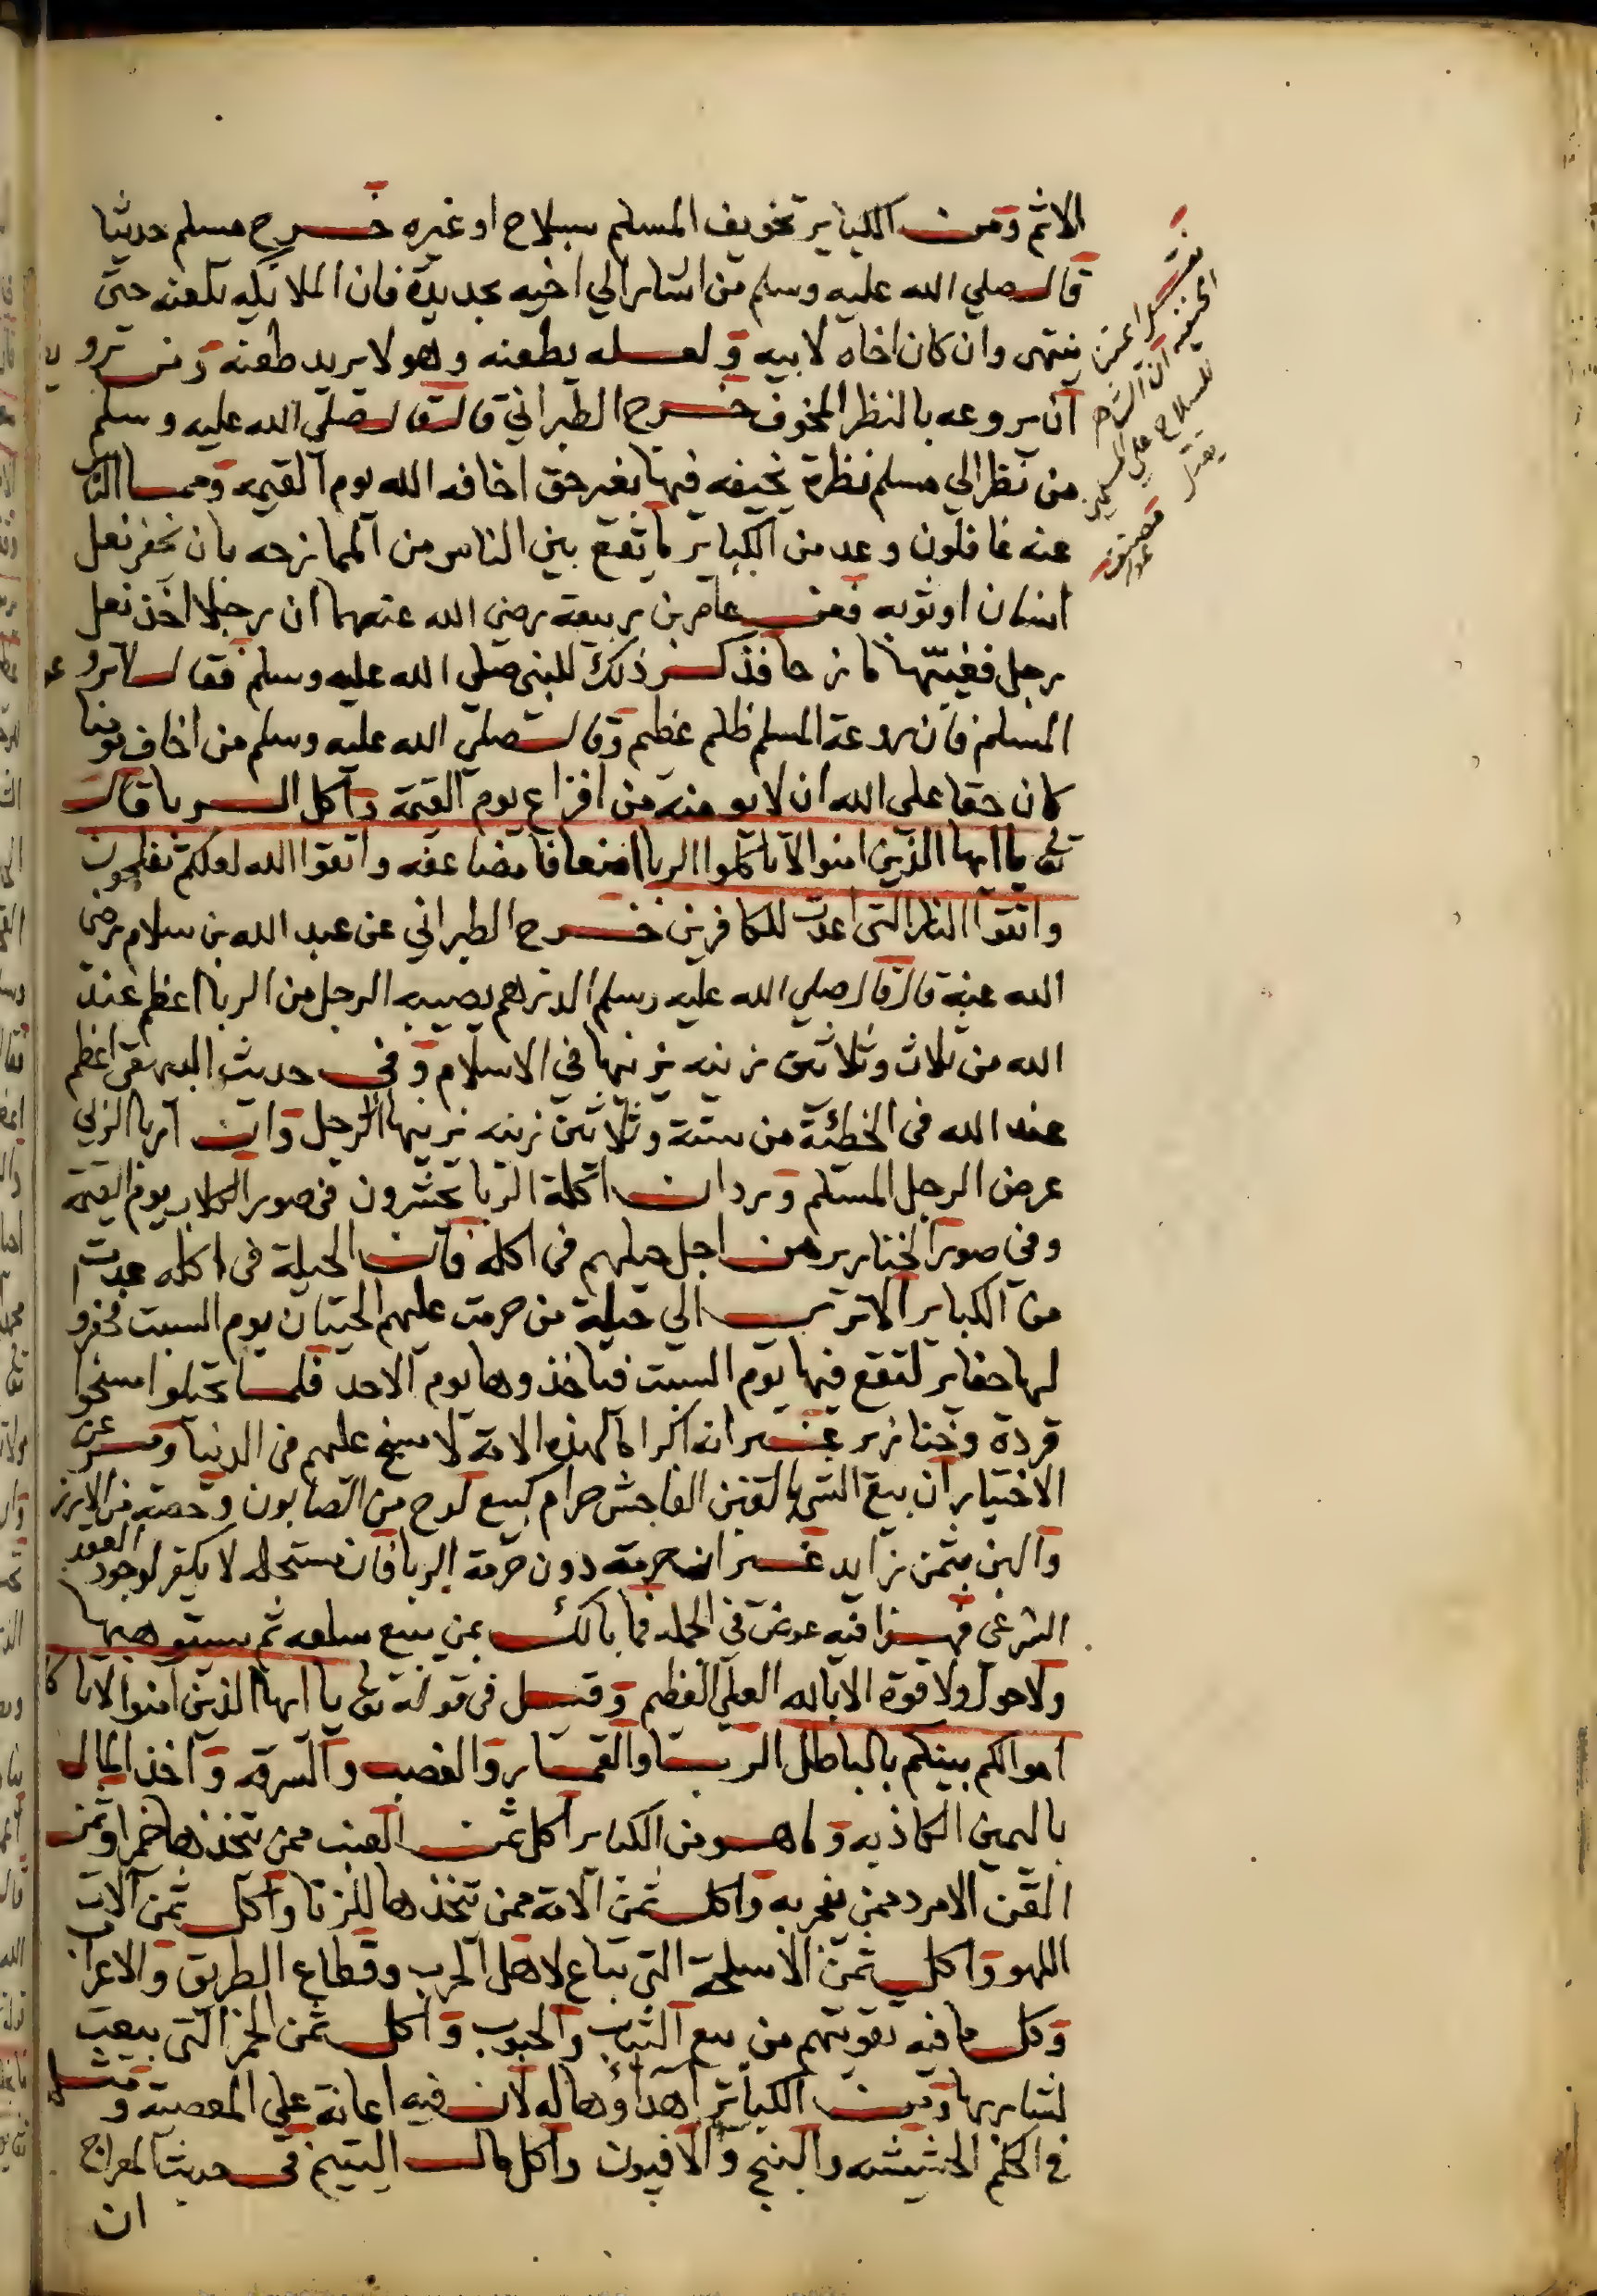 الاثم ومن الكبائر تخويف المسلم بسلاح او غيره خرج مسلم حديثا
قال صلي الله عليه وسلم من اشار الي اخيه بحديدة فان الملائكه تلعنه حتى
ينتهى وان كان اخاه لابيه ولعله يطعنه وهو لا يريد طعنه ومن
ان يروعه بالنظر المخوف خرج الطبراني قال قال صلي الله عليه وسلم
من نظر الي مسلم نظرة يخيفه فيها بغير حق اخافه الله يوم القيمه ومما الناس
عنه غافلون وعد من الكبائر ما يقع بين الناس من الممازحه بان يخفر نعل
انسان او ثوبه فعن عامر بن ربيعة رضي الله عنهما ان رجلا اخذ نعل
رجل فغيبها مازحا فذكر ذلك للنبي صلي الله عليه وسلم فقال لا تروعوا
المسلم فان روعة المسلم ظلم عظيم وقال صلي الله عليه وسلم من اخاف مومنا
كان حقا علي الله ان لا يومنه من افزاع يوم القيمة واكل الربا قال
تعالى يا ايها الذين امنوا لا تاكلوا الربا اضعافا مضاعفه واتقوا الله لعلكم تفلحون
واتقوا النار التى اعدت للكافرين خرج الطبراني عن عبد الله بن سلام رضي
الله عنه قال قال صلي الله عليه وسلم الدرهم يصيبه الرجل من الربا اعظم عند
الله من ثلاث وثلاثين زنيه يزنيها في الاسلام وفي حديث البيهقي اعظم
عند الله في الخطئة من ستة وثلاثين زنيه يزنيها الرجل وان اربا الربي
عرض الرجل المسلم وورد ان اكلة الربا يحشرون في صور الكلاب يوم القيمة
وفي صور الخنازير من اجل حيلهم في اكله فان الحيلة في اكله عدت
من الكبائر الا ترى الي حيلة من حرمت عليهم الحيتان يوم السبت فحفروا
لها حفائر لتقع فيها يوم السبت فياخذوها يوم الاحد فلما تحيلوا مسخوا
قردة وخنازير غير انه اكراما لهذه الامة لا مسخ عليهم في الدنيا وفي شرح
الاختيار ان بيع الشى بالغبن الفاحش حرام كبيع لوح من الصابون وحصته من الارز
والبن بثمن زايد غير ان حرمته دون حرمة الربا فان مستحله لا يكفر لوجود العقد
الشرعى فهذا فيه عوض في الجمله فما بالك بمن يبيع سلعه ثم يستوهبها
ولا حول ولا قوة الا بالله العلي العظيم وقيل في قوله تعالى يا ايها الذين امنوا لا تاكلوا
اموالكم بينكم بالباطل الربا والقمار والغصب والسرقه واخذ المال
باليمين الكاذبه وما هو من الكبائر اكل ثمن العنب ممن يتخذها خمرا وثمن
القن الامرد ممن يفجر به واكل ثمن الامة ممن يتخذها للزنا واكل ثمن آلات
اللهو واكل ثمن الاسلحة التى تباع لاهل الحرب وقطاع الطريق والاعراب
وكل ما فيه تقويتهم من بيع الثياب والحبوب واكل ثمن الخمر التى بيعت
لشاربها ومن الكبائر اهداؤها له لان فيه اعانة علي المعصية ومثله
في الحكم الحشيشه والبنج والافيون واكل مال اليتيم في حديث المعراج
ان
الحنفيه ان الشاهر
للسلاح علي المسلمين
يقتل